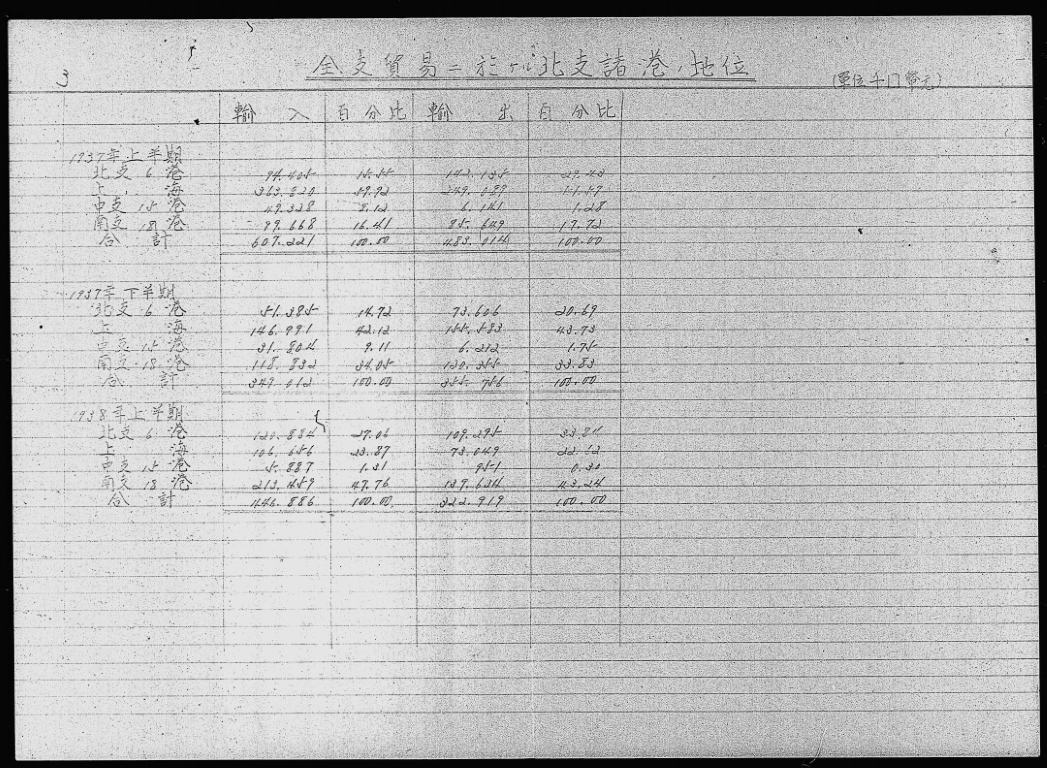 3
全支貿易ニ於ケル北支諸港ノ地位
(單位千口幣元)
輸入 百分比 輸出 百分比
1937年上半期
北支 6 港 94.405 15.55 142.135 29.43
上海 363.820 59.92 249.089 51.57
中支 15 港 49.328 8.12 6.141 1.28
南支 18 港 99.668 16.41 85.649 17.72
合計 607.221 100.00 483.014 100.00
1937年下半期
北支 6 港 51.385 14.72 73.606 20.69
上海 146.991 42.12 155.583 43.73
中支 15 港 31.804 9.11 6.212 1.75
南支 18 港 118.832 34.05 120.355 33.83
合計 349.012 100.00 355.756 100.00
1938年上半期
北支 6 港 120.884 27.06 109.285 33.84
上海 106.656 23.87 73.049 22.62
中支 15 港 5.887 1.31 951 0.30
南支 18 港 213.459 47.76 139.634 43.24
合計 446.886 100.00 322.919 100.00